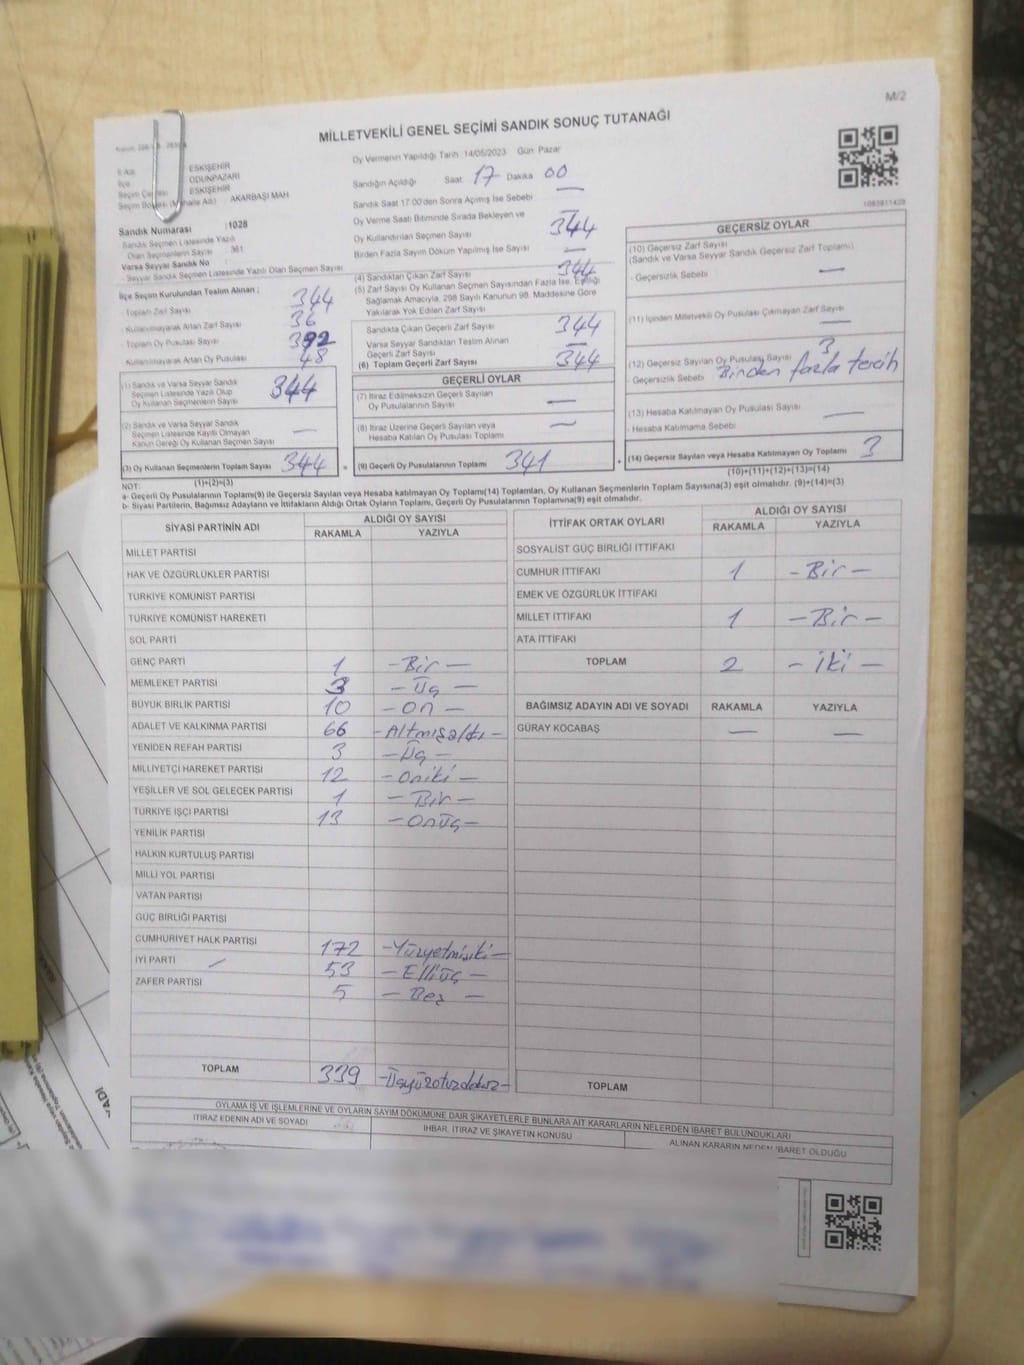 M/2
MİLLETVEKİLİ GENEL SEÇİMİ SANDIK SONUÇ TUTANAĞI
İl Adı : ESKİŞEHİR
İlçe : ODUNPAZARI
Seçim Çevresi : ESKİŞEHİR
AKARBAŞI MAH
Sandık Numarası :1028
Sandık Seçmen Listesinde Yazılı
Olan Seçmenlerin Sayısı : 361
Varsa Seyyar Sandık No :
- Seyyar Sandık Seçmen Listesinde Yazılı Olan Seçmen Sayısı
İlçe Seçim Kurulundan Teslim Alınan ;
- Toplam Zarf Sayısı 344
- Kullanılmayarak Artan Zarf Sayısı 36
- Toplam Oy Pusulası Sayısı 392
- Kullanılmayarak Artan Oy Pusulası 48
(1) Sandık ve Varsa Seyyar Sandık
Seçmen Listesinde Yazılı Olup
Oy Kullanan Seçmenlerin Sayısı 344
(2) Sandık ve Varsa Seyyar Sandık
Seçmen Listesinde Kayıtlı Olmayan
Kanun Gereği Oy Kullanan Seçmen Sayısı —
(3) Oy Kullanan Seçmenlerin Toplam Sayısı 344 =
(1)+(2)=(3)
Oy Vermenin Yapıldığı Tarih :14/05/2023 Gün: Pazar
Sandığın Açıldığı Saat 17 Dakika 00
Sandık Saat 17:00'den Sonra Açılmış İse Sebebi —
Oy Verme Saati Bitiminde Sırada Bekleyen ve —
Oy Kullandırılan Seçmen Sayısı 344
Birden Fazla Sayım Döküm Yapılmış İse Sayısı —
(4) Sandıktan Çıkan Zarf Sayısı 344
(5) Zarf Sayısı Oy Kullanan Seçmen Sayısından Fazla İse, Eşitliği
Sağlamak Amacıyla, 298 Sayılı Kanunun 98. Maddesine Göre
Yakılarak Yok Edilen Zarf Sayısı
Sandıkta Çıkan Geçerli Zarf Sayısı 344
Varsa Seyyar Sandıktan Teslim Alınan
Geçerli Zarf Sayısı —
(6) Toplam Geçerli Zarf Sayısı 344
GEÇERLİ OYLAR
(7) İtiraz Edilmeksizin Geçerli Sayılan
Oy Pusulalarının Sayısı —
(8) İtiraz Üzerine Geçerli Sayılan veya
Hesaba Katılan Oy Pusulası Toplamı —
(9) Geçerli Oy Pusulalarının Toplamı 341 +
1083811428
GEÇERSİZ OYLAR
(10) Geçersiz Zarf Sayısı
(Sandık ve Varsa Seyyar Sandık Geçersiz Zarf Toplamı)
- Geçersizlik Sebebi —
(11) İçinden Milletvekili Oy Pusulası Çıkmayan Zarf Sayısı —
(12) Geçersiz Sayılan Oy Pusulası Sayısı 3
- Geçersizlik Sebebi : Birden fazla tercih
(13) Hesaba Katılmayan Oy Pusulası Sayısı —
- Hesaba Katılmama Sebebi
(14) Geçersiz Sayılan veya Hesaba Katılmayan Oy Toplamı 3
(10)+(11)+(12)+(13)=(14)
NOT:
a- Geçerli Oy Pusulalarının Toplamı(9) ile Geçersiz Sayılan veya Hesaba katılmayan Oy Toplamı(14) Toplamları, Oy Kullanan Seçmenlerin Toplam Sayısına(3) eşit olmalıdır. (9)+(14)=(3)
b- Siyasi Partilerin, Bağımsız Adayların ve İttifakların Aldığı Ortak Oyların Toplamı, Geçerli Oy Pusulalarının Toplamına(9) eşit olmalıdır.
SİYASİ PARTİNİN ADI ALDIĞI OY SAYISI
RAKAMLA YAZIYLA
MİLLET PARTİSİ
HAK VE ÖZGÜRLÜKLER PARTİSİ
TÜRKİYE KOMÜNİST PARTİSİ
TÜRKİYE KOMÜNİST HAREKETİ
SOL PARTİ
GENÇ PARTİ 1 -Bir-
MEMLEKET PARTİSİ 3 -Üç-
BÜYÜK BİRLİK PARTİSİ 10 -On-
ADALET VE KALKINMA PARTİSİ 66 -Altmışaltı-
YENİDEN REFAH PARTİSİ 3 -Üç-
MİLLİYETÇİ HAREKET PARTİSİ 12 -Oniki-
YEŞİLLER VE SOL GELECEK PARTİSİ 1 -Bir-
TÜRKİYE İŞÇİ PARTİSİ 13 -Onüç-
YENİLİK PARTİSİ
HALKIN KURTULUŞ PARTİSİ
MİLLİ YOL PARTİSİ
VATAN PARTİSİ
GÜÇ BİRLİĞİ PARTİSİ
CUMHURİYET HALK PARTİSİ 172 -Yüzyetmişiki-
İYİ PARTİ 53 -Elliüç-
ZAFER PARTİSİ 5 -Beş-
TOPLAM 339 -Üçyüzotuzdokuz-
İTTİFAK ORTAK OYLARI ALDIĞI OY SAYISI
RAKAMLA YAZIYLA
SOSYALİST GÜÇ BİRLİĞİ İTTİFAKI
CUMHUR İTTİFAKI 1 -Bir-
EMEK VE ÖZGÜRLÜK İTTİFAKI
MİLLET İTTİFAKI 1 -Bir-
ATA İTTİFAKI
TOPLAM 2 -İki-
BAĞIMSIZ ADAYIN ADI VE SOYADI RAKAMLA YAZIYLA
GÜRAY KOCABAŞ — —
TOPLAM
OYLAMA İŞ VE İŞLEMLERİNE VE OYLARIN SAYIM DÖKÜMÜNE DAİR ŞİKAYETLERLE BUNLARA AİT KARARLARIN NELERDEN İBARET BULUNDUKLARI
İTİRAZ EDENİN ADI VE SOYADI İHBAR, İTİRAZ VE ŞİKAYETİN KONUSU ALINAN KARARIN NEDEN İBARET OLDUĞU